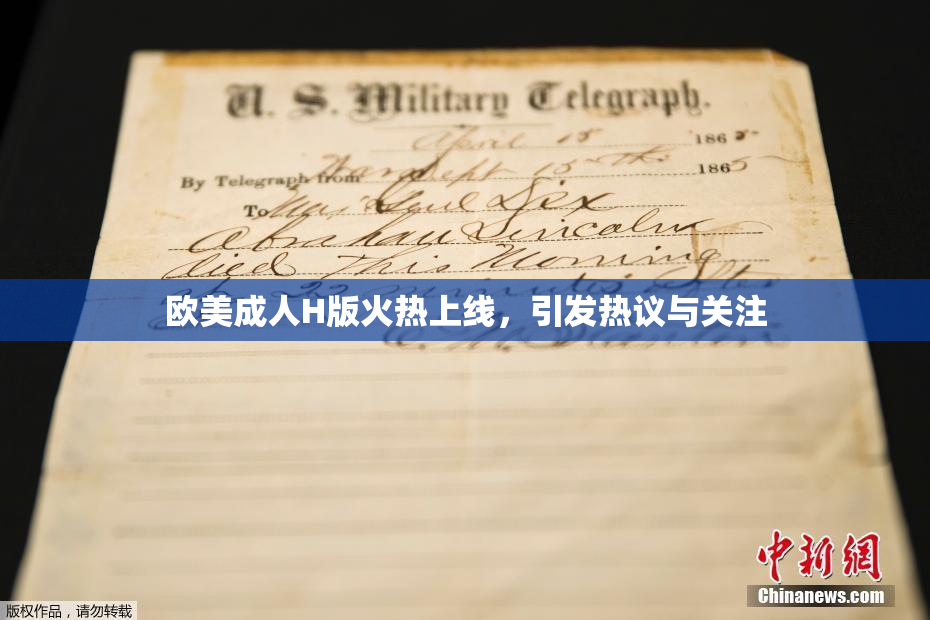 U. S. Military Telegraph.
April 15 1865-
By Telegraph from War Dept 15th 1865
To Maj Genl Dix
Abraham Lincoln
died This Morning
at 22 minutes after
欧美成人H版火热上线，引发热议与关注
中新網
Chinanews.com
版权作品，请勿转载